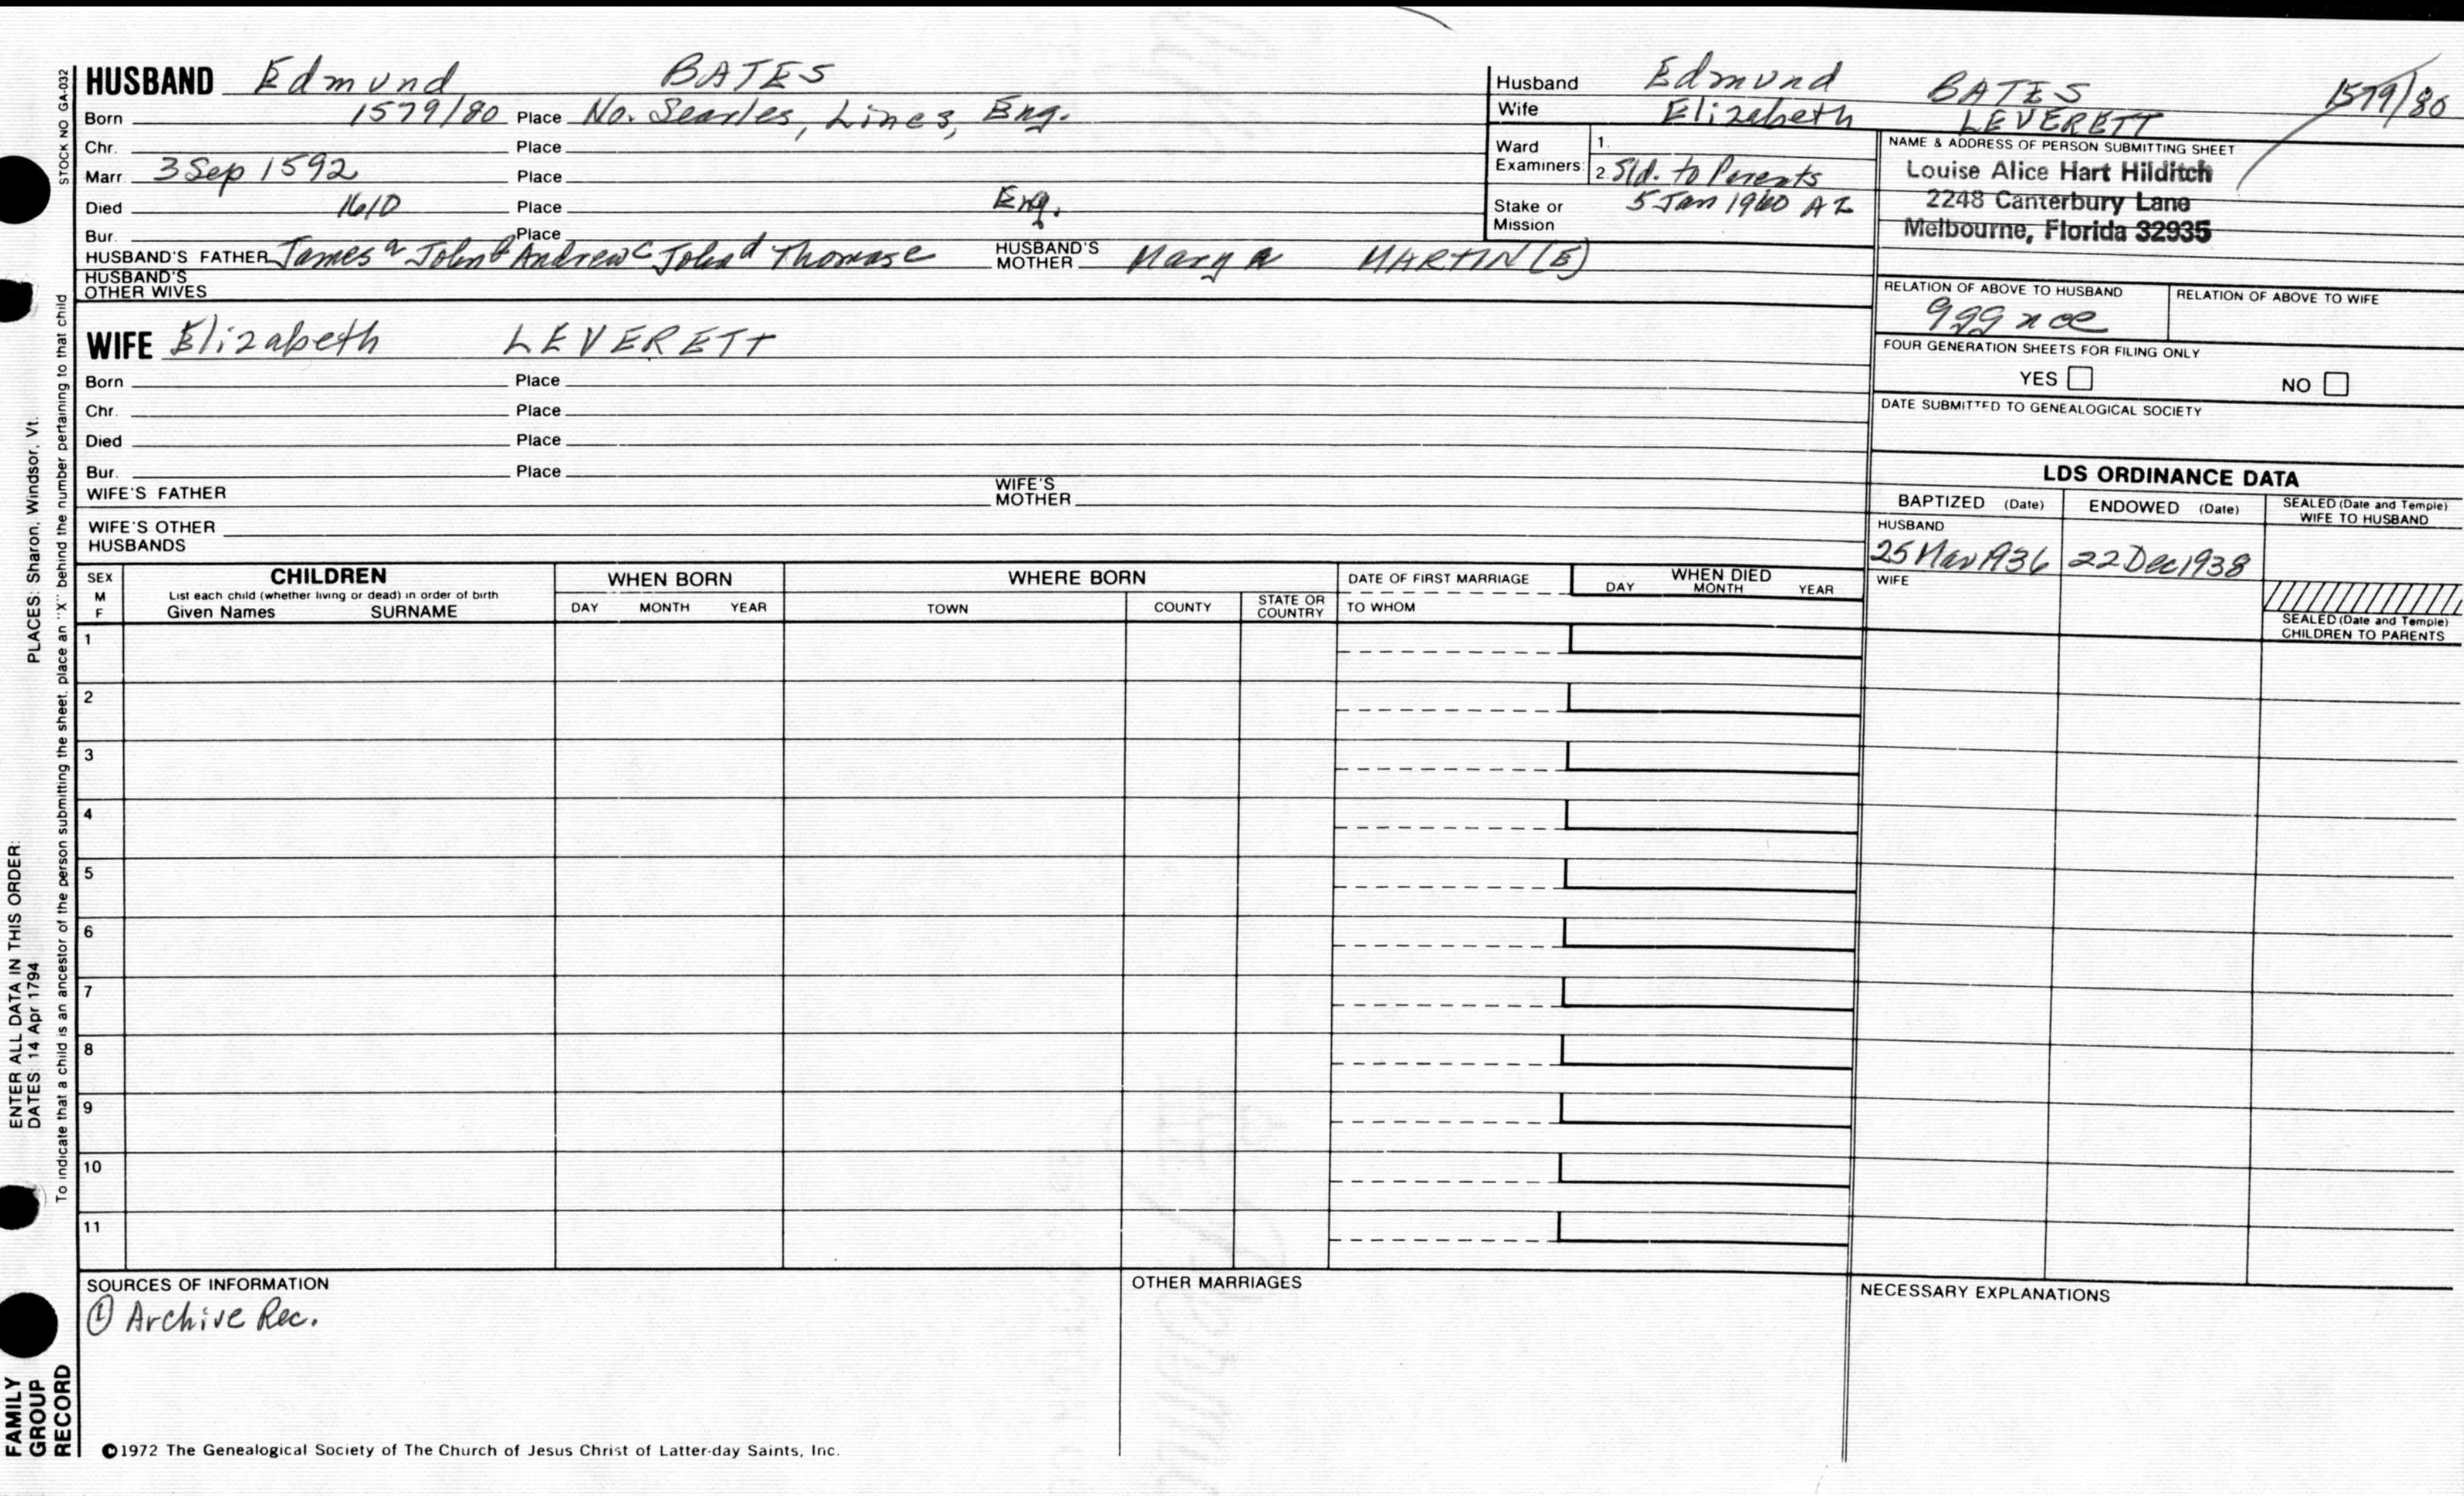 STOCK NO GA-032
HUSBAND Edmund BATES
Born 1579/80 Place No. Searles, Lincs, Eng.
Chr. Place
Marr 3 Sep 1592 Place
Died 1610 Place Eng.
Bur. Place
HUSBAND'S FATHER James a John b Andrew c John d Thomas e HUSBAND'S MOTHER Mary a MARTIN (E)
HUSBAND'S OTHER WIVES
Husband Edmund BATES 1579/80
Wife Elizabeth LEVERETT
Ward Examiners: 1.
2. Sld. to Parents
Stake or Mission 5 Jan 1960 AZ
NAME & ADDRESS OF PERSON SUBMITTING SHEET
Louise Alice Hart Hilditch
2248 Canterbury Lane
Melbourne, Florida 32935
RELATION OF ABOVE TO HUSBAND RELATION OF ABOVE TO WIFE
ggg nce
FOUR GENERATION SHEETS FOR FILING ONLY
YES NO
DATE SUBMITTED TO GENEALOGICAL SOCIETY
WIFE Elizabeth LEVERETT
Born Place
Chr. Place
Died Place
Bur. Place
WIFE'S FATHER WIFE'S MOTHER
WIFE'S OTHER HUSBANDS
LDS ORDINANCE DATA
BAPTIZED (Date) ENDOWED (Date) SEALED (Date and Temple) WIFE TO HUSBAND
HUSBAND
25 Mar 1936 22 Dec 1938
WIFE
SEALED (Date and Temple) CHILDREN TO PARENTS
SEX M F
CHILDREN
List each child (whether living or dead) in order of birth
Given Names SURNAME
WHEN BORN
DAY MONTH YEAR
WHERE BORN
TOWN COUNTY STATE OR COUNTRY
DATE OF FIRST MARRIAGE
TO WHOM
WHEN DIED
DAY MONTH YEAR
1
2
3
4
5
6
7
8
9
10
11
SOURCES OF INFORMATION
① Archive Rec.
OTHER MARRIAGES
NECESSARY EXPLANATIONS
©1972 The Genealogical Society of The Church of Jesus Christ of Latter-day Saints, Inc.
FAMILY GROUP RECORD
ENTER ALL DATA IN THIS ORDER:
DATES: 14 Apr 1794 PLACES: Sharon, Windsor, Vt.
To indicate that a child is an ancestor of the person submitting the sheet, place an "X" behind the number pertaining to that child